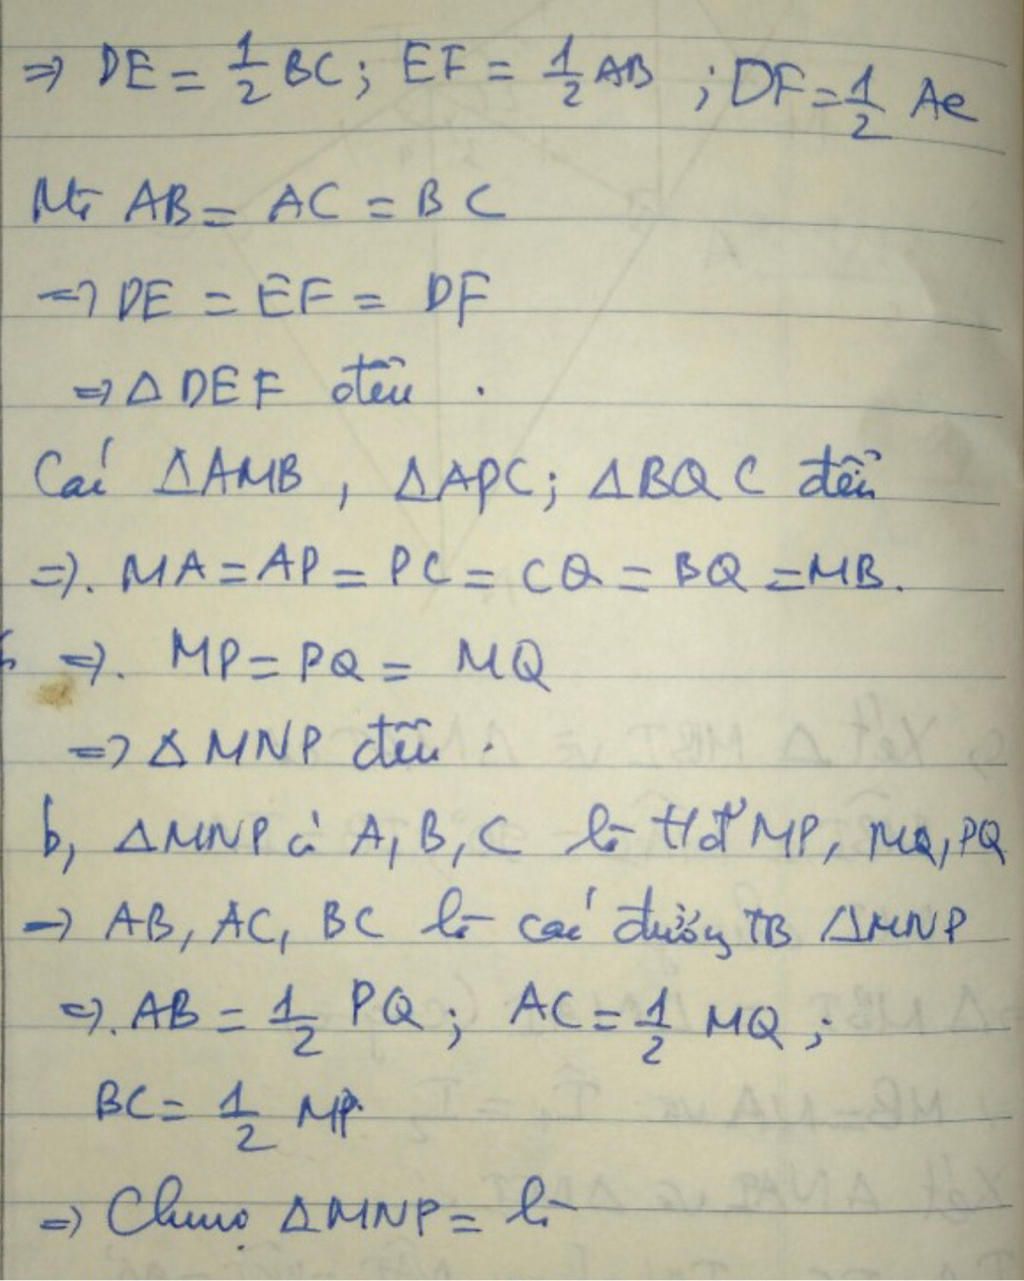 => DE = 1/2 BC; EF = 1/2 AB ; DF = 1/2 AC
Mà AB = AC = BC
=> DE = EF = DF
=> Δ DEF đều .
Các ΔAMB , ΔAPC; ΔBQC đều
=>. MA = AP = PC = CQ = BQ = MB.
=>. MP = PQ = MQ
=> Δ MNP đều .
b, ΔMNP có A, B, C là MP, MQ, PQ
=> AB, AC, BC là các đường TB ΔMNP
=>. AB = 1/2 PQ; AC = 1/2 MQ ;
BC = 1/2 MP.
=> ΔMNP = là